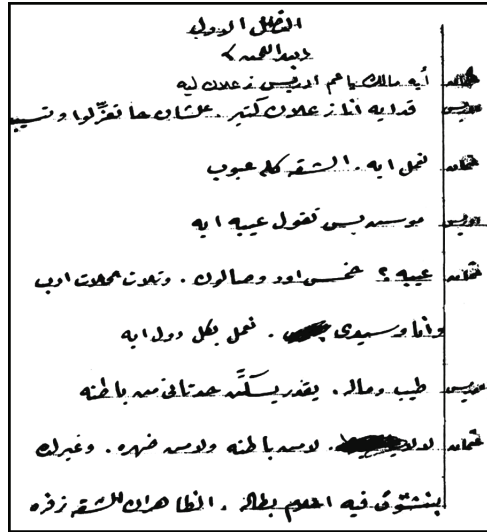 الفصل الاول
(بعد اللحن)
عثمان أيه مالك يا عم ادريس زعلان ليه
ادريس قد ايه أنا زعلان كتير. علشان حا تعزّلوا وتسيبـ
عثمان نعمل ايه. الشقه كلها عيوب
ادريس موسيو بس تقول عيبه ايه
عثمان عيبه؟ خمس اود وصالون. وتلات محلات ادب
وأنا وسيدى. نعمل بكل دول ايه
ادريس طيب وماله. يقدر يسكّن حد تانى من باطنه
عثمان لا لا. لا من باطنه ولا من ضهره. وغير كده
بنشوف فيه احلام بطاله. الظاهر ان الشقه زفره